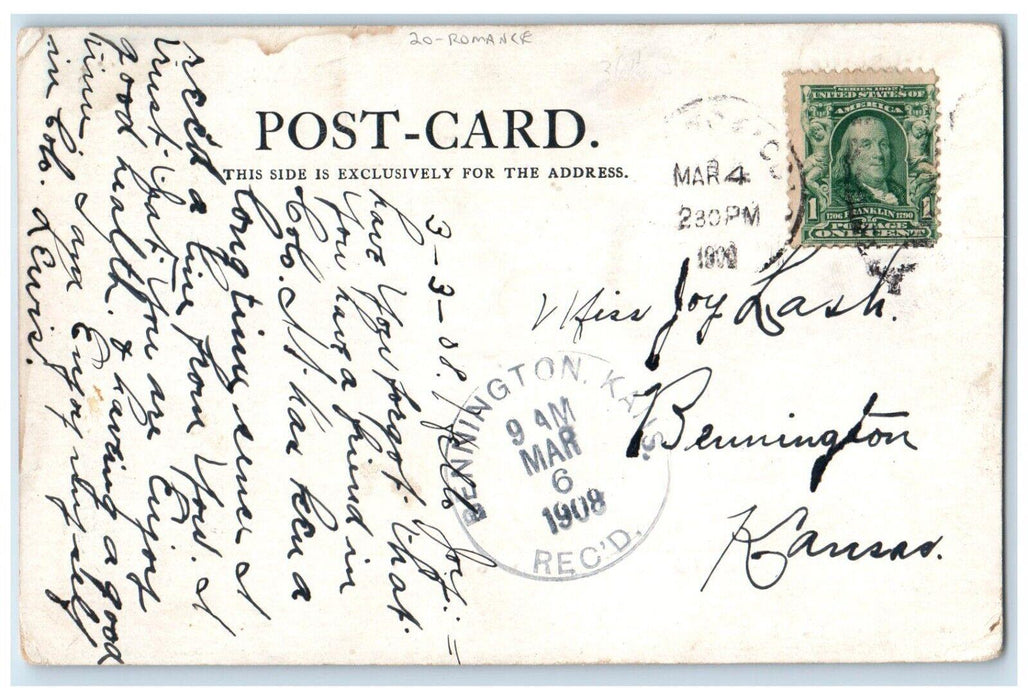 20-ROMANCE
POST-CARD.
THIS SIDE IS EXCLUSIVELY FOR THE ADDRESS.
SERIES 1902
UNITED STATES OF
AMERICA
1706 FRANKLIN 1790
POSTAGE
1 ONE CENT 1
MAR 4
230 PM
1908
Miss Joy Lash.
Bennington
Kansas.
BENNINGTON, KANS.
9 AM
MAR
6
1908
REC'D.
3-3-08. Hello Joy. =
have you forgot that
you have a friend in
Colo. It has been a
long time since I
recd a line from you. I
trust that you are Enjoy
good health & having a good
time I am Enjoy myself
in Colo. Lewis.